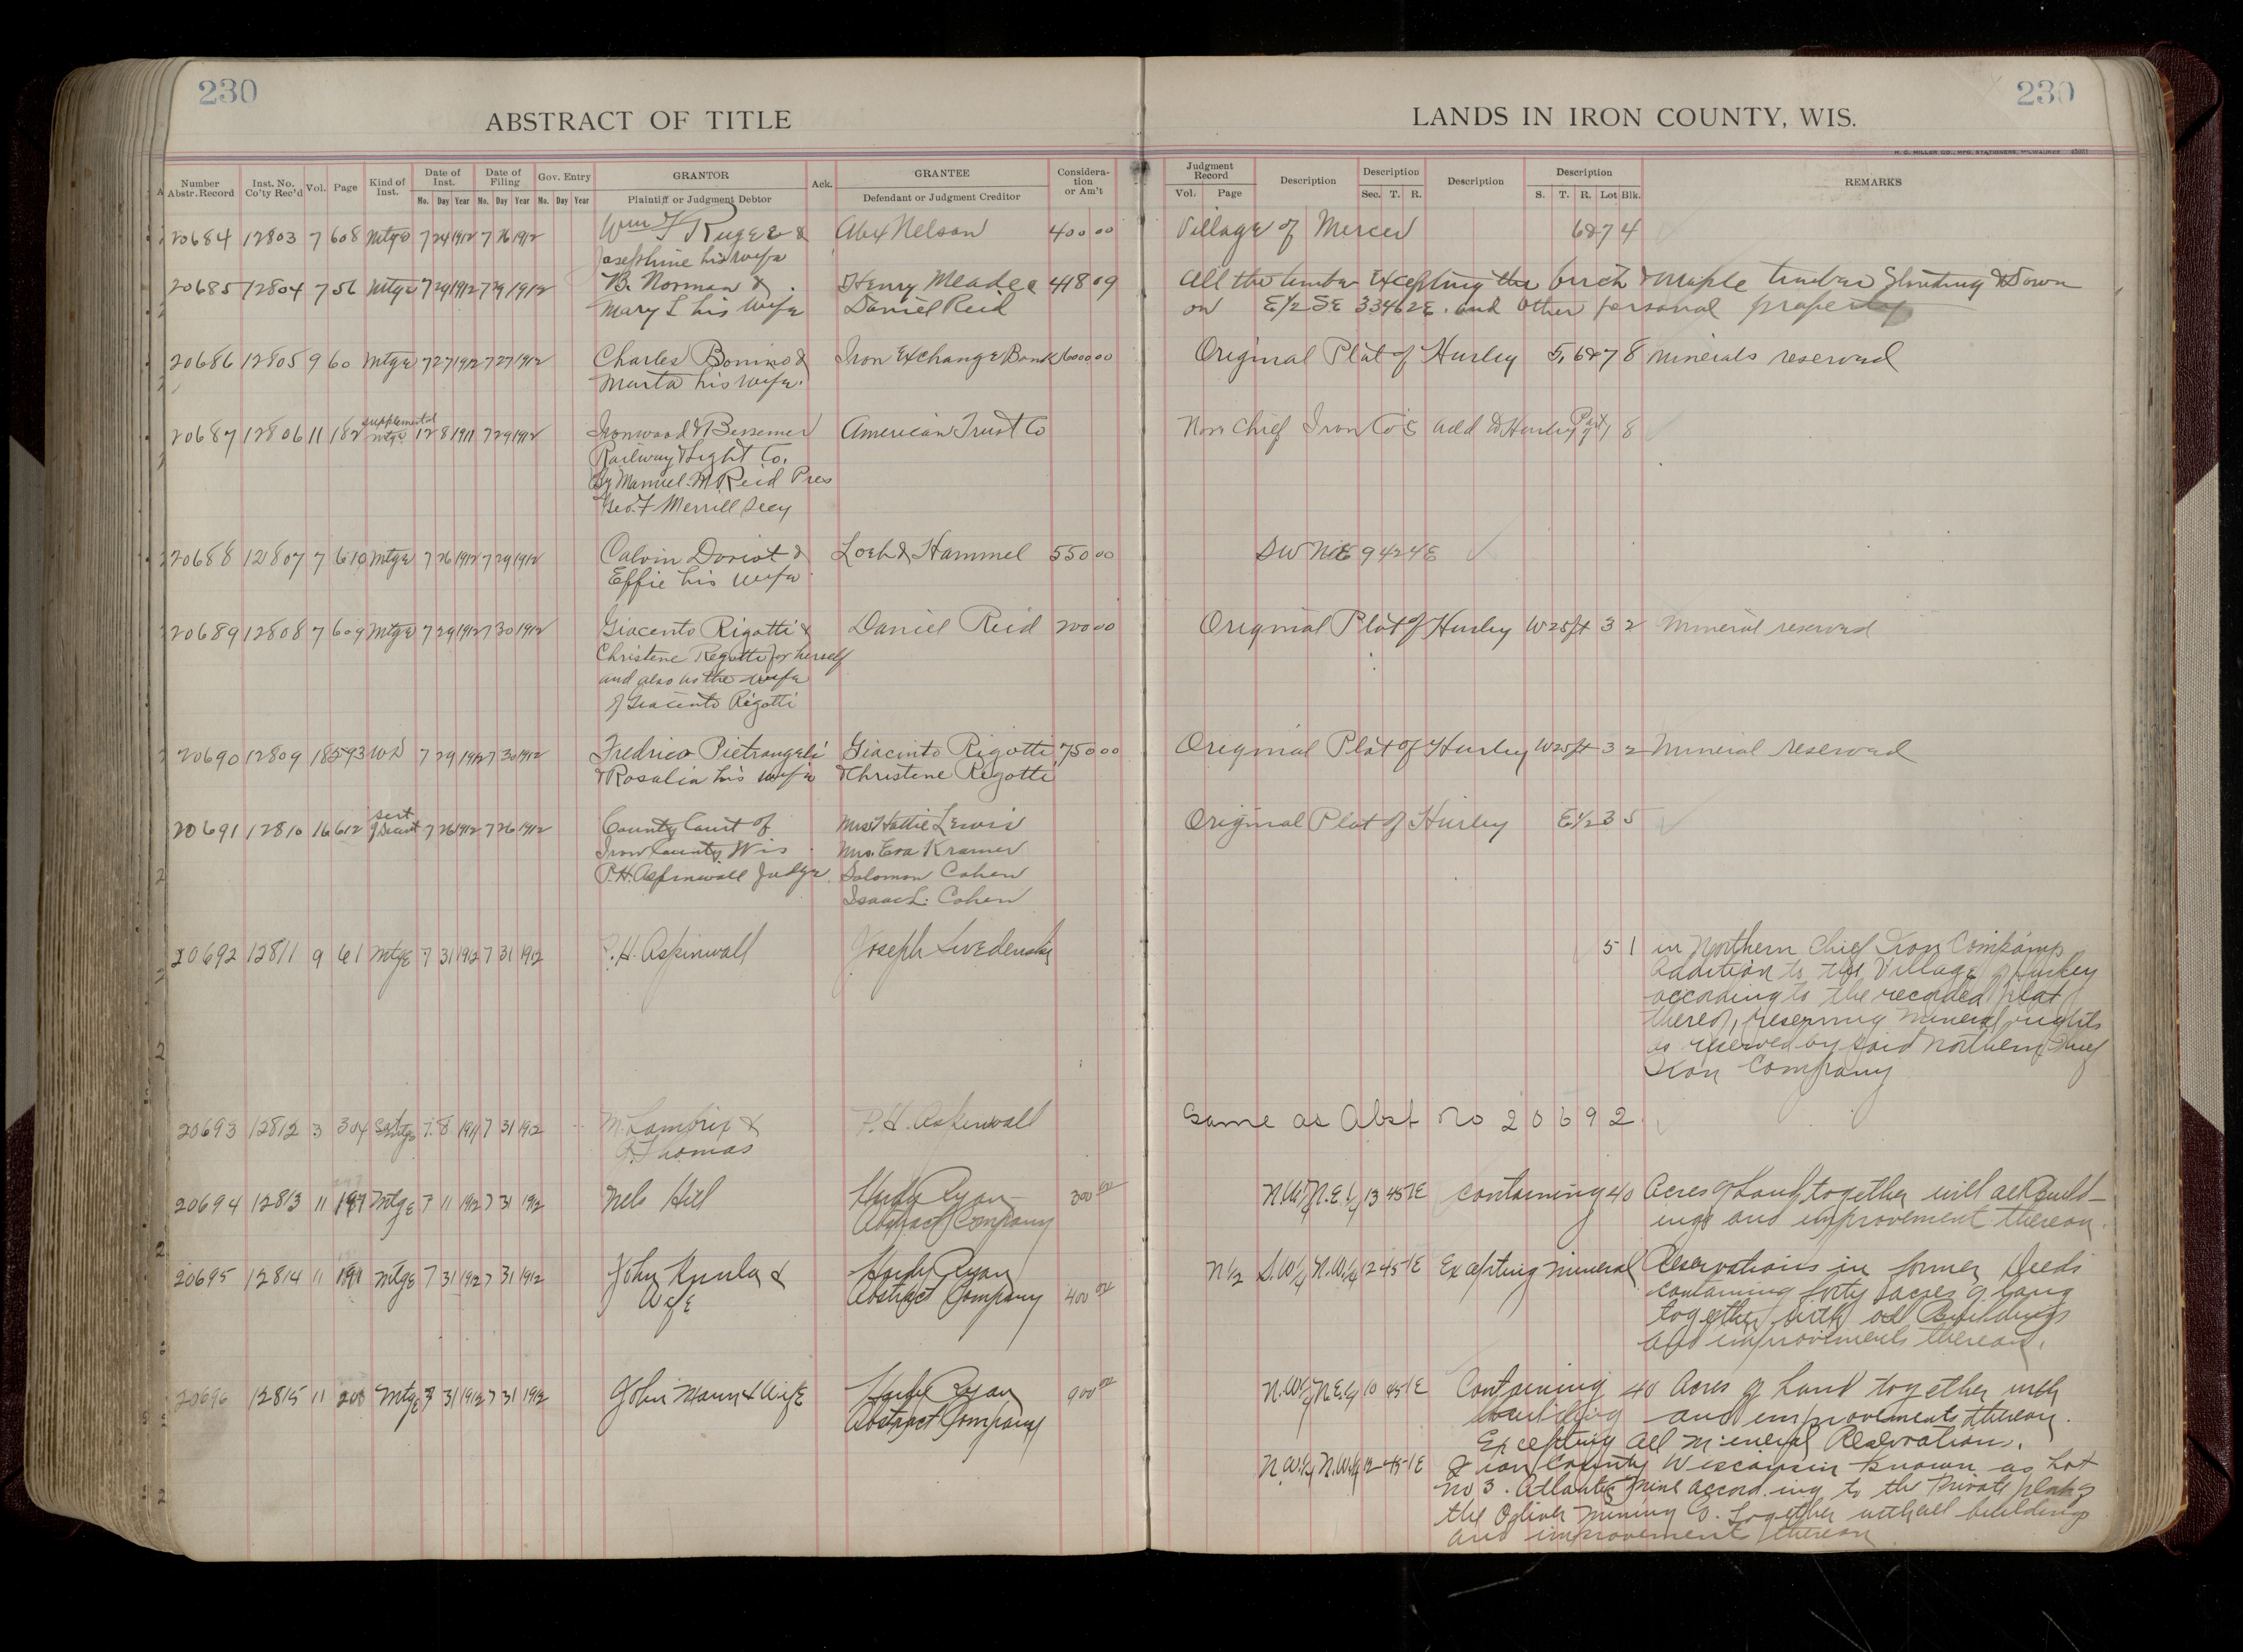 230
ABSTRACT OF TITLE
230
LANDS IN IRON COUNTY, WIS.
H. C. MILLER CO., MFG. STATIONERS, MILWAUKEE
Number Abstr. Record Inst. No. Co'ty Rec'd Vol. Page Kind of Inst. Date of Inst. Date of Filing Gov. Entry GRANTOR Ack. GRANTEE Consideration or Am't Judgment Record Description Description Description Description REMARKS
Mo. Day Year Mo. Day Year Mo. Day Year Plaintiff or Judgment Debtor Defendant or Judgment Creditor Vol. Page Sec. T. R. S. T. R. Lot Blk.
20684 12803 7 608 Mtge 7 24 1912 7 26 1912 Wm F Ruger & Abe Nelson 400 00 Village of Mercer 6&7 4
Josephine his wife
20685 12804 7 56 Mtge 7 29 1912 7 29 1912 B. Norman & Henry Meade & 418 09 All the timber Excepting the birch & Maple timber Standing & Down
Mary L his wife Daniel Reid on E1/2 SE 33 46 2E. and other personal property
20686 12805 9 60 Mtge 7 27 1912 7 27 1912 Charles Bonino & Iron Exchange Bank 1600 00 Original Plat of Hurley 5,6&7 8 Minerals reserved
Marta his wife.
20687 12806 11 182 supplemental mtge 12 8 1911 7 29 1912 Ironwood & Bessemer American Trust Co Nor. Chief Iron Co's add to Hurley Part of 1 8
Railway & Light Co.
By Manuel. M Reid Pres
Geo. F Merrill Secy
20688 12807 7 610 Mtge 7 26 1912 7 29 1912 Calvin Doriot & Loeb & Hammel 550 00 SW NE 9 42 4E
Effie his wife
20689 12808 7 609 Mtge 7 29 1912 7 30 1912 Giacento Rigotti & Daniel Reid 200 00 Original Plat of Hurley W25ft 3 2 Mineral reserved
Christene Regotti for herself
and also as the wife
of Giacinto Rigotti
20690 12809 18 593 WD 7 29 1912 7 30 1912 Fredrico Pietrangeli Giacinto Rigotti 750 00 Original Plat of Hurley W25ft 3 2 Mineral reserved
& Rosalia his wife & Christene Rigotti
20691 12810 16 612 7 26 1912 7 26 1912 County Court of Mrs Hattie Lewis Original Plat of Hurley E1/2 3 5
Iron County Wis Mrs. Eva Kramer
P.H. Aspinwall Judge. Solomon Cohen
Isaac L. Cohen
20692 12811 9 61 Mtge 7 31 1912 7 31 1912 P. H. Aspinwall Joseph Swedenski 5 1 in Northern Chief Iron Companys
Addition to the Village of Hurley
according to the recorded plat
thereof, reserving mineral rights
as reserved by said Northern Chief
Iron Company
20693 12812 3 304 7 8 1911 7 31 1912 M. Lambrix & P. H. Aspinwall Same as Abst No 20692.
G. Thomas
20694 12813 11 197 Mtge 7 11 1912 7 31 1912 Nels Hill Hurley Ryan 300 00 N.W.1/4 N.E.1/4 13 45 1E containing 40 Acres of Land together with all Build-
Abstract Company ings and improvement thereon.
20695 12814 11 199 Mtge 7 31 1912 7 31 1912 John & Hardy Ryan N1/2 S.W1/4 N.W1/4 12 45 1E Excepting mineral Reservations in former Deeds
Wife Abstract Company 400 00 containing forty acres of land
together with all Buildings
and improvements thereon.
20696 12815 11 200 Mtge 7 31 1912 7 31 1912 John Mann & Wife Hardy Ryan 900 00 N.W1/4 N.E.1/4 10 45 1E Containing 40 Acres of Land together with
Abstract Company building and improvements thereon.
Excepting all mineral Reservation.
N.W.1/4 N.W.1/4 12 45 1E Iron County Wisconsin Known as Lot
No 3. Atlantic Mine according to the Private plat of
the Oglivie Mining Co. Together with all buildings
and improvement thereon